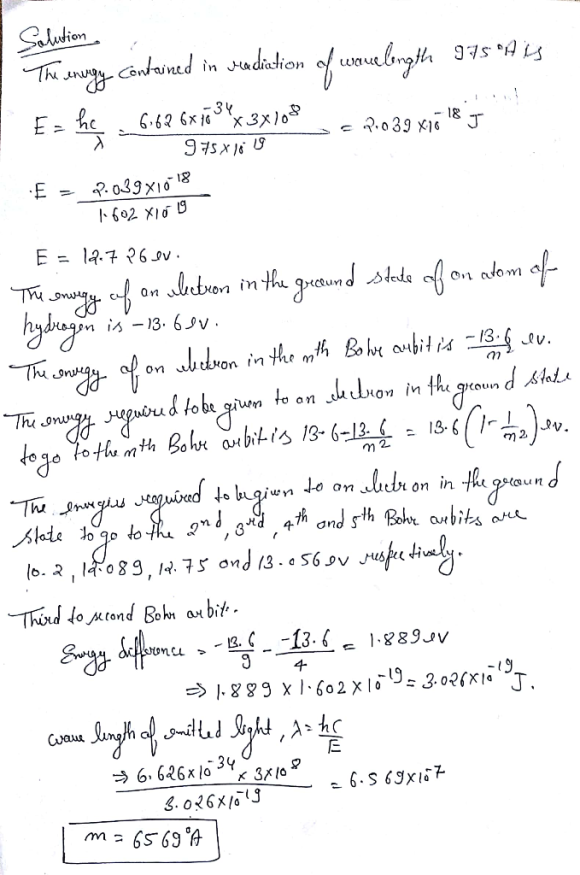 Solution
The energy contained in radiation of wavelength 975°A is
E = hc/λ = 6.626×10^-34 × 3×10^8 / 975×10^-19 = 2.039×10^-18 J
E = 2.039×10^-18 / 1.602×10^-19
E = 12.726 ev.
The energy of an electron in the ground state of an atom of
hydrogen is -13.6 ev.
The energy of an electron in the nth Bohr orbit is -13.6/n² ev.
The energy required to be given to an electron in the ground state
to go to the nth Bohr orbit is 13-6-13.6/n² = 13.6(1-1/n²) ev.
The energies required to be given to an electron in the ground
state to go to the 2nd, 3rd, 4th and 5th Bohr orbits are
10.2, 12.089, 12.75 and 13.056 ev respectively.
Third to second Bohr orbit.
Energy difference = -13.6/9 - -13.6/4 = 1.889 ev
⇒ 1.889 × 1.602×10^-19 = 3.026×10^-19 J.
wave length of emitted light, λ = hc/E
⇒ 6.626×10^-34 × 3×10^8 / 3.026×10^-19 = 6.569×10^-7
m = 6569°A